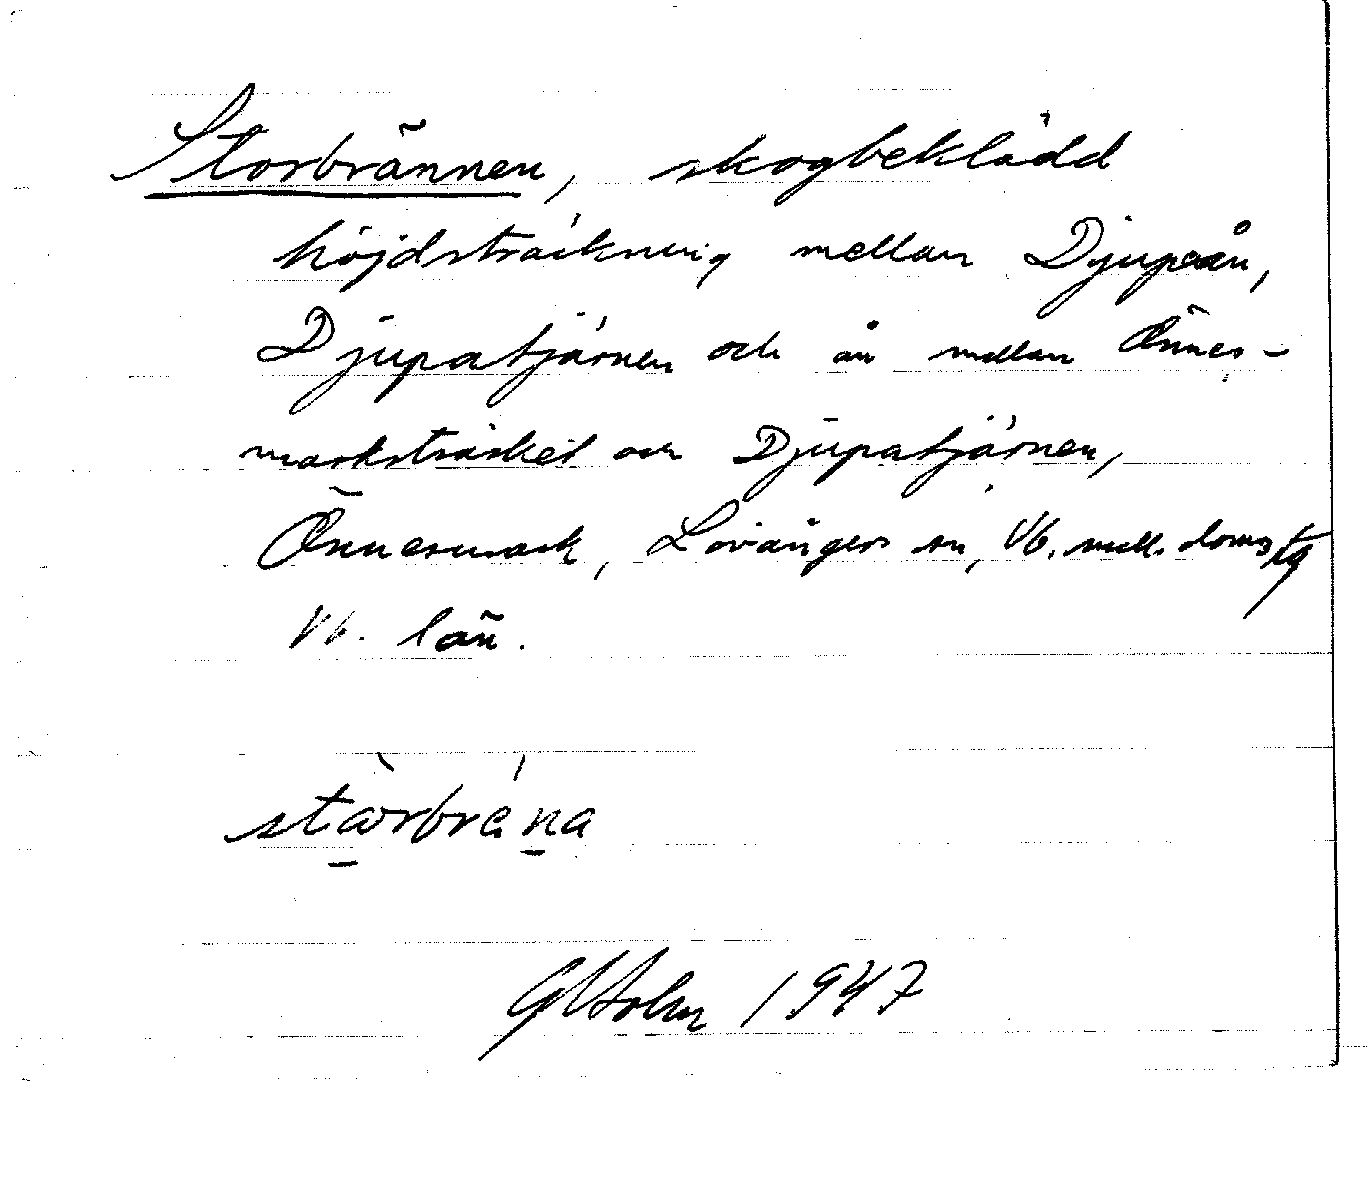 Storbrännen, skogbeklädd
höjdsträckning mellan Djupeån,
Djupatjärnen och ån mellan Önnes-
marksträsket och Djupatjärnen,
Önnesmark, Lövångers sn, Vb. mell. doms tg
Vb. län.
GHolm 1947